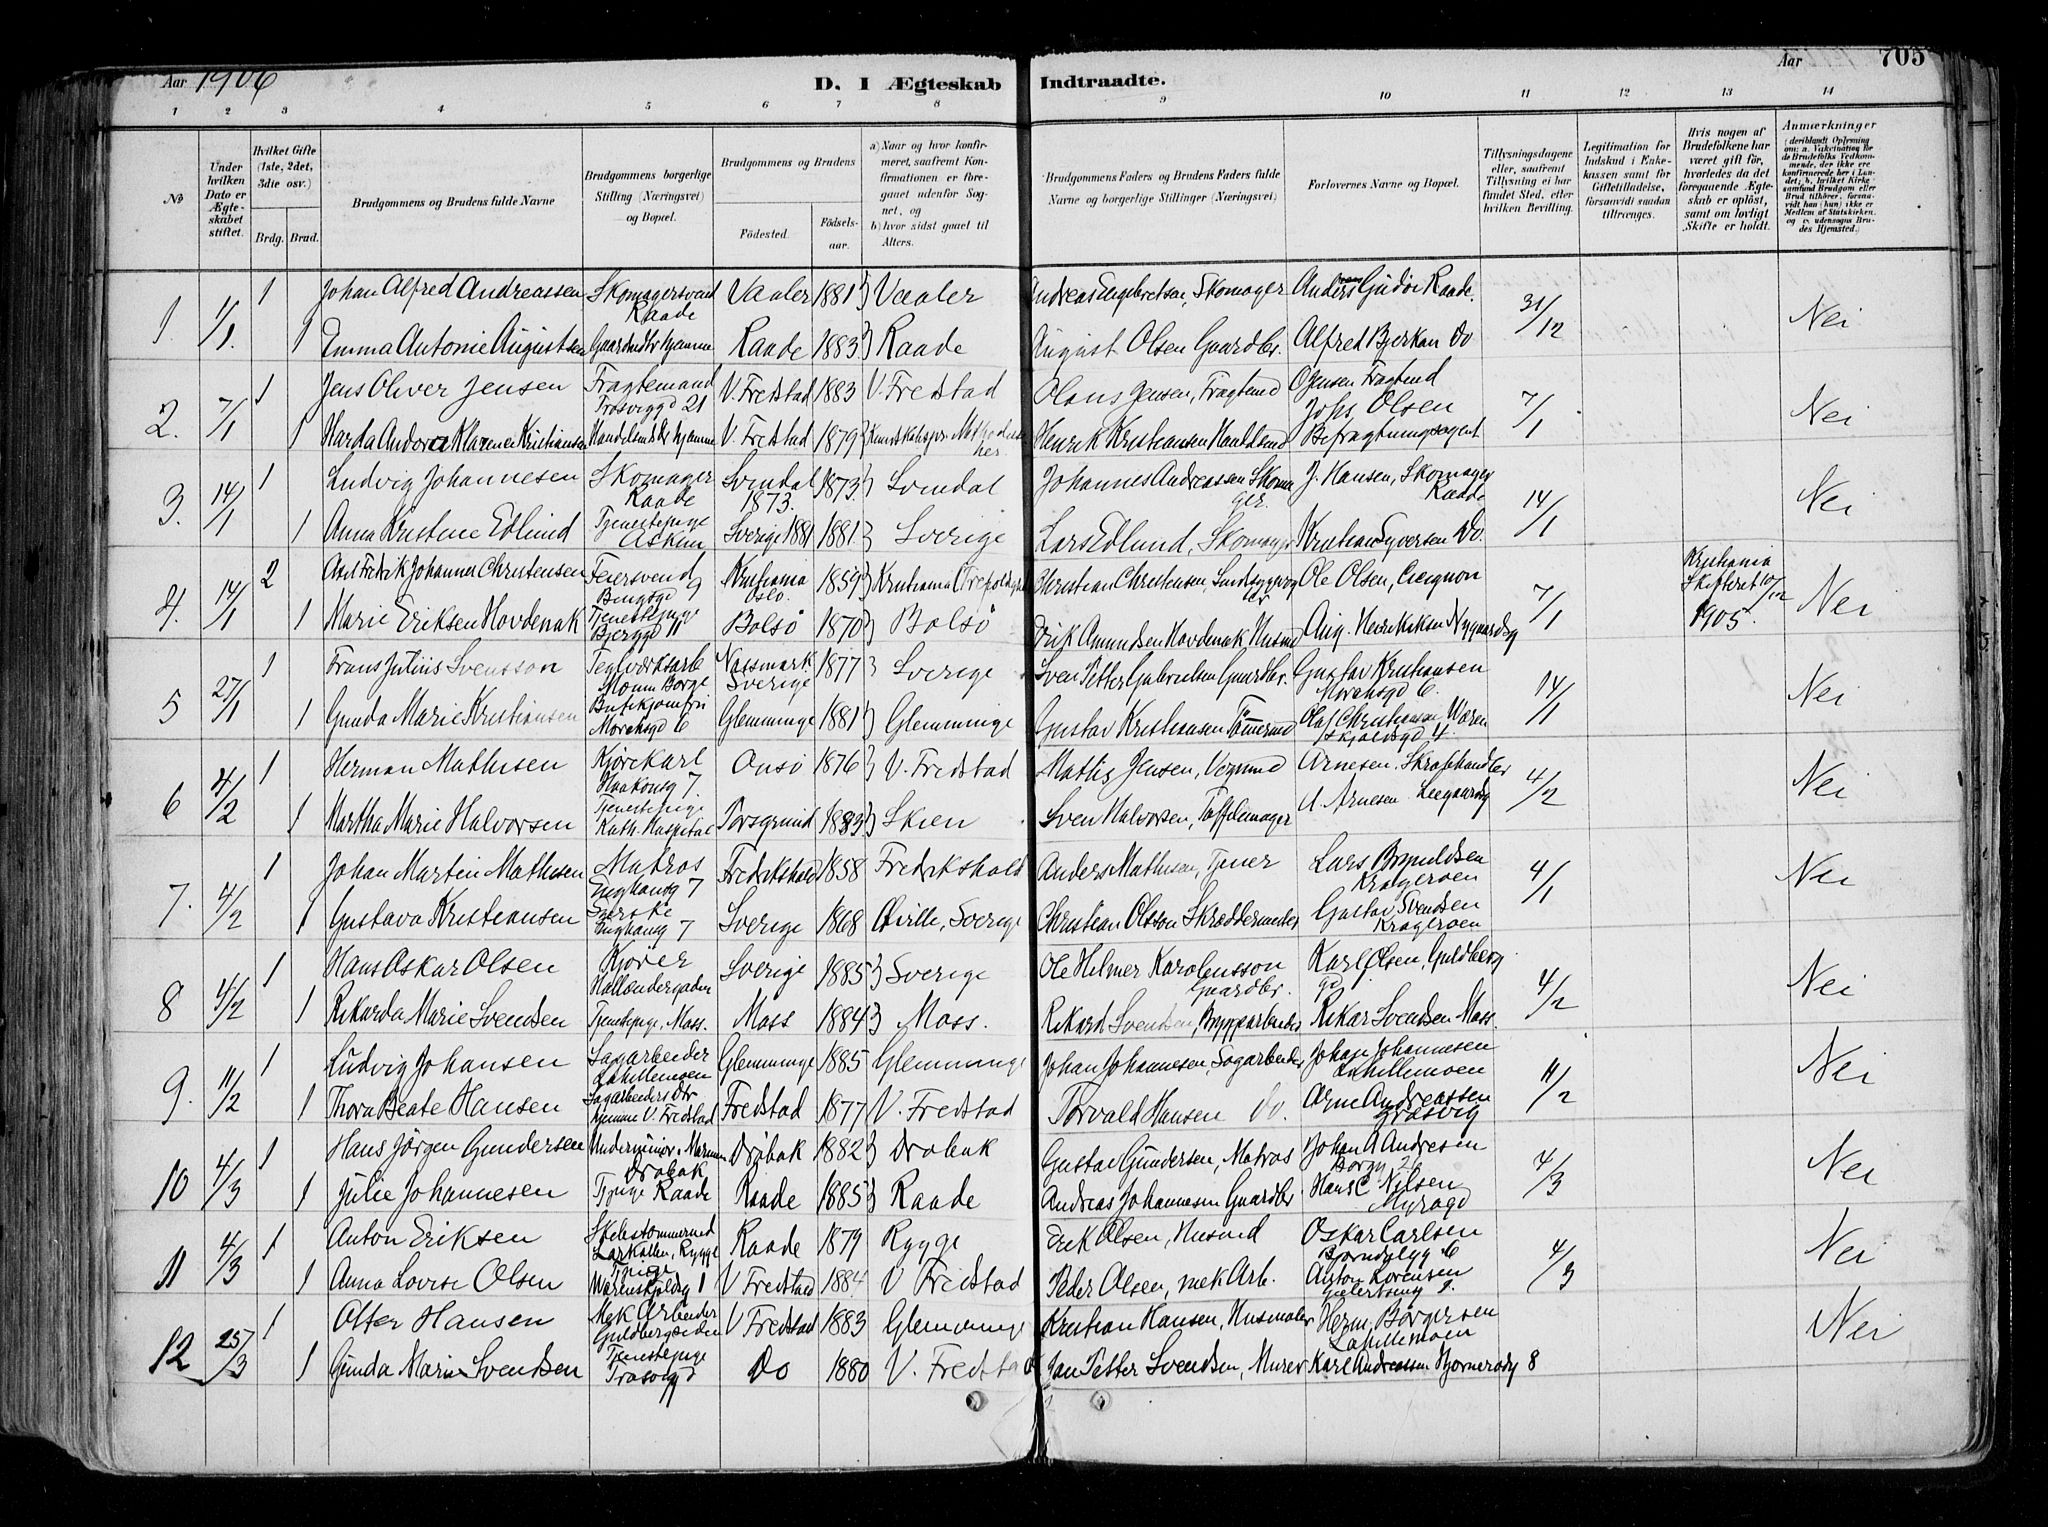 Aar 1906
D. I Ægteskab Indtraadte.
Aar
705
1 2 3 4 5 6 7 8 9 10 11 12 13 14
No
Under hvilken Dato er Ægteskabet stiftet.
Hvilket Gifte (1ste, 2det, 3die osv.)
Brdg. Brud.
Brudgommens og Brudens fulde Navne
Brudgommens borgerlige Stilling (Næringsvei) og Bopæl.
Brudgommens og Brudens
Födested. Födselsaar.
a) Naar og hvor konfirmeret, saafremt Konfirmationen er foregaaet udenfor Sognet, og
b) hvor sidst gaaet til Alters.
Brudgommens Faders og Brudens Faders fulde Navne og borgerlige Stillinger (Næringsvei)
Forlovernes Navne og Bopæl.
Tillysningsdagene eller, saafremt Tillysning ei har fundet Sted, efter hvilken Bevilling.
Legitimation for Indskud i Enkekassen samt for Giftetilladelse, forsaavidt saadan tiltrænges.
Hvis nogen af Brudefolkene har været gift för, hvorledes da det foregaaende Ægteskab er oplöst, samt om lovligt Skifte er holdt.
Anmærkninger
1. 1/1. 1 Johan Alfred Andreassen Skomagersvend Raade Vaaler 1881 Vaaler Andreas Engebretsen, Skomager Anders Gudim Raade. 31/12 Nei
1 Emma Antonie Augustsen Gaardbr hjemme Raade 1883 Raade August Olsen Gaardbr. Alfred Bjerkan Do
2. 7/1 1 Jens Oliver Jensen Fragtemand Trosviggd 21 V. Fredstad 1883 V. Fredstad Olaus Jensen, Fragtemd O Jensen Fragtemd 7/1 Nei
1 Harda Andorea Klarena Kristiansen hjemme V. Fredstad 1879 Henrik Kristiansen Johs Olsen Befragtningsagent
3. 14/1 1 Ludvig Johannesen Skomager Raade Svindal 1873. 1873 Svindal Johannes Andreassen Skomager. J. Hansen, Skomager Raade 14/1 Nei
1 Anna Kristine Edlund Tjenestepige Askim Sverige 1881 1881. Sverige Lars Edlund, Skomager Kristian Syversen Do.
4. 14/1 2 Axel Fredrik Johannes Christensen Feiersvend Kristiania Oslo. 1859 Christian Christensen, Ole Olsen, 7/1 Kristiania Skifteret 10/12 1905. Nei
1 Marie Eriksen Hovdenak Tjenestepige Bjerggd 11 Bolsö 1870 Bolsö Erik Amundsen Hovdenak Husmd Aug. Henriksen Nygaardsg
5 27/1 1 Frans Julius Svensson Teglværksarb Moum Borge Nassmark Sverige 1877 Sverige Sven Petter Gabrielsen Gaardbr. Gustav Kristiansen Morahsgd 6. 14/1 Nei
1 Gunda Marie Kristiansen Butikjomfru Morahsgd 6 Glemminge 1881 Glemminge Gustav Kristiansen Tömmermd Olaf Christiansen Wæren Skjoldsgd 4.
6 4/2 1 Herman Mathisen Kjörekarl Haakonsg 7. Onsö 1876 V. Fredstad Mathis Jensen, Arnesen, Skraphandler 4/2 Nei
1 Martha Marie Halvorsen Tjenestepige Kath. Hospital Porsgrund 1883 Skien Sven Halvorsen, Töffelmager A. Arnesen.
7. 4/2 1 Johan Martin Mathisen Matros Enghausg 7 Fredrikshald 1858 Fredrikshald Anders Mathisen, Tjener Lars Brynildsen Krageröen 4/1 Nei
1 Gustava Kristiansen Enghausg 7 Sverige 1868 Qville, Sverige Christian Olsson Skræddermester Gustav Svendsen Krageröen
8 4/2 1 Hans Oskar Olsen Kjörer Hollændergaden Sverige 1885 Sverige Ole Helmer Karolensson Gaardbr. Karl Olsen, Guldberg gd 4/2 Nei
1 Rikarda Marie Svendsen Tjenestepige, Moss. Moss 1884 Moss. Rikard Svendsen, Bryggearbeider Rikar Svendsen Moss.
9. 11/2 1 Ludvig Johansen Sagarbeider Lahellemoen Glemminge 1885 Glemminge Johan Johannesen, Sagarbeider Johan Johannesen Lahellemoen 11/2 Nei
1 Thora Beate Hansen Sagarbeiders Dtr hjemme V. Fredstad Fredstad 1877 V. Fredstad Torvald Hansen do. Arne Andreassen Gräsvig
10 4/3 1 Hans Jörgen Gundersen Underminör v. Marinen Dröbak Dröbak 1882 Dröbak Gustav Gundersen, Matros Johan A Andresen Borgg 21 4/3 Nei
1 Julie Johannesen Tjpige Raade Raade 1885 Raade Andreas Johannesen Gaardbr Hans C Nilsen Myragd
11 4/3 1 Anton Eriksen Larkollen, Rygge Raade 1879 Rygge Erik Olsen, Husmd Oskar Carlsen 4/3 Nei
1 Anna Lovise Olsen Tjpige Wærenskjoldsg 1 V Fredstad 1884 V Fredstad Peder Olsen, mek Arb. Anton Sörensen
12 25/3 1 Otter Hansen Mek Arbeider Guldbergsiden V Fredstad 1883 Glemminge Kristian Hansen, Husmaler Herm. Börgersen Lahellemoen Nei
1 Gunda Marie Svendsen Tjenestepige Trosvigg Do 1880 V. Fredstad Jan Petter Svendsen, Murer Karl Andreassen Bjornerödg 8